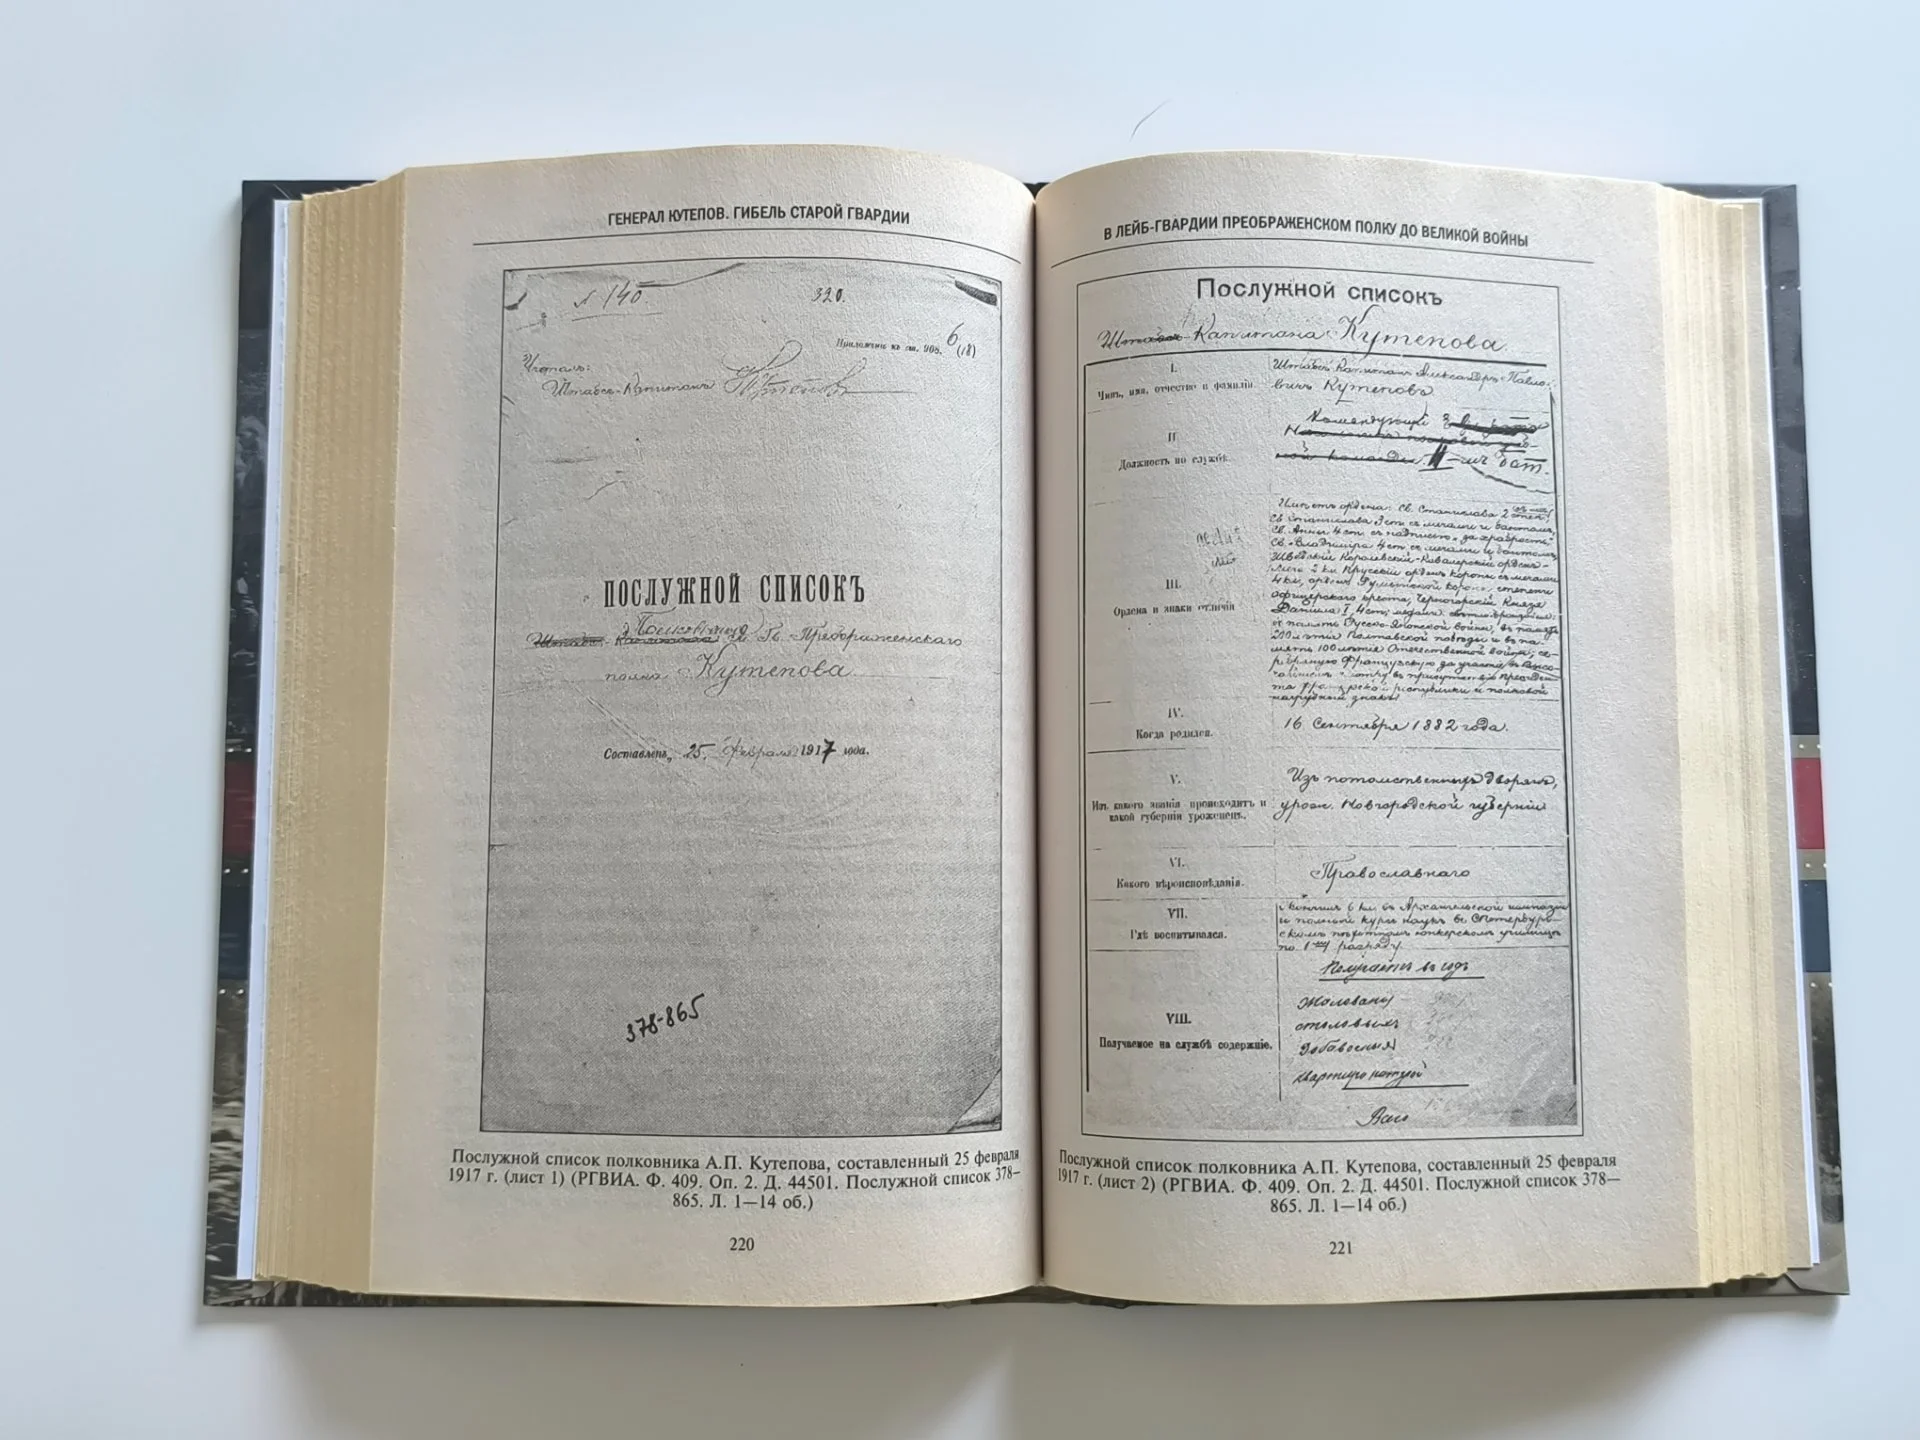 ГЕНЕРАЛ КУТЕПОВ. ГИБЕЛЬ СТАРОЙ ГВАРДИИ
№ 140.
320.
Приложение къ ст. 968.
6 (18)
Читалъ:
Штабсъ-Капитанъ Кутеповъ
ПОСЛУЖНОЙ СПИСОКЪ
Полковника
Штабсъ-Капитана Гв. Преображенскаго
полка Кутепова.
Составленъ 25 февраля 1917 года.
378-865
Послужной список полковника А.П. Кутепова, составленный 25 февраля
1917 г. (лист 1) (РГВИА. Ф. 409. Оп. 2. Д. 44501. Послужной список 378–
865. Л. 1—14 об.)
220
В ЛЕЙБ-ГВАРДИИ ПРЕОБРАЖЕНСКОМ ПОЛКУ ДО ВЕЛИКОЙ ВОЙНЫ
Послужной списокъ
Штабсъ-Капитана Кутепова.
I.
Чинъ, имя, отчество и фамилія
Штабсъ Капитанъ Александръ Павло-
вичъ Кутеповъ
II
Должность по службѣ.
Командующій
II-мъ бат.
III.
Ордена и знаки отличія
Имѣетъ ордена: Св. Станислава 2 степ.
Св. Станислава 3 ст. съ мечами и бантомъ,
Св. Анны 4 ст. съ надписью „за храбрость“
Св. Владиміра 4 ст. съ мечами и бантомъ,
Шведскій Королевскій-Кавалерскій орденъ-
Меча 2 кл. Прусскій орденъ Короны съ мечами
4 кл., орденъ Румынской короны, степени
офицерскаго креста, Черногорскій Князя
Даніила I, 4 ст; медали:
въ память Русско-Японской войны, въ память
200 лѣтія Полтавской побѣды и въ па-
мять 100 лѣтія Отечественной войны; се-
ребряную Французскую за участіе въ Высо-
чайшемъ смотру въ присутствіи президен-
та Французской республики и полковой
нагрудный знакъ.
IV.
Когда родился.
16 Сентября 1882 года.
V.
Изъ какого званія происходитъ и
какой губерніи уроженецъ.
Изъ потомственныхъ дворянъ,
урож. Новгородской губерніи
VI.
Какого вѣроисповѣданія.
Православнаго
VII.
Гдѣ воспитывался.
Окончилъ 6 кл. въ Архангельской гимназіи
и полный курсъ наукъ въ С.Петербург-
скомъ пѣхотномъ юнкерскомъ училищѣ
по 1му разряду.
VIII.
Получаемое на службѣ содержаніе.
Получаетъ въ годъ
Жалованья
столовыхъ
Добавочныя
квартирныхъ
Всего
Послужной список полковника А.П. Кутепова, составленный 25 февраля
1917 г. (лист 2) (РГВИА. Ф. 409. Оп. 2. Д. 44501. Послужной список 378–
865. Л. 1—14 об.)
221